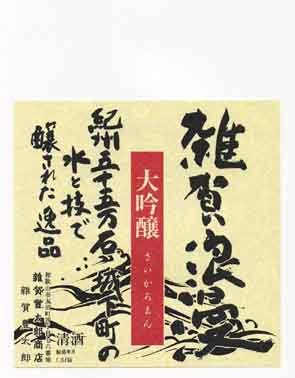 雑賀浪漫
大吟醸
さいかろまん
紀州五十五万石城下町の
水と技で…
醸された逸品
雑賀豊太郎商店
雑賀豊太郎
清酒
製造年月